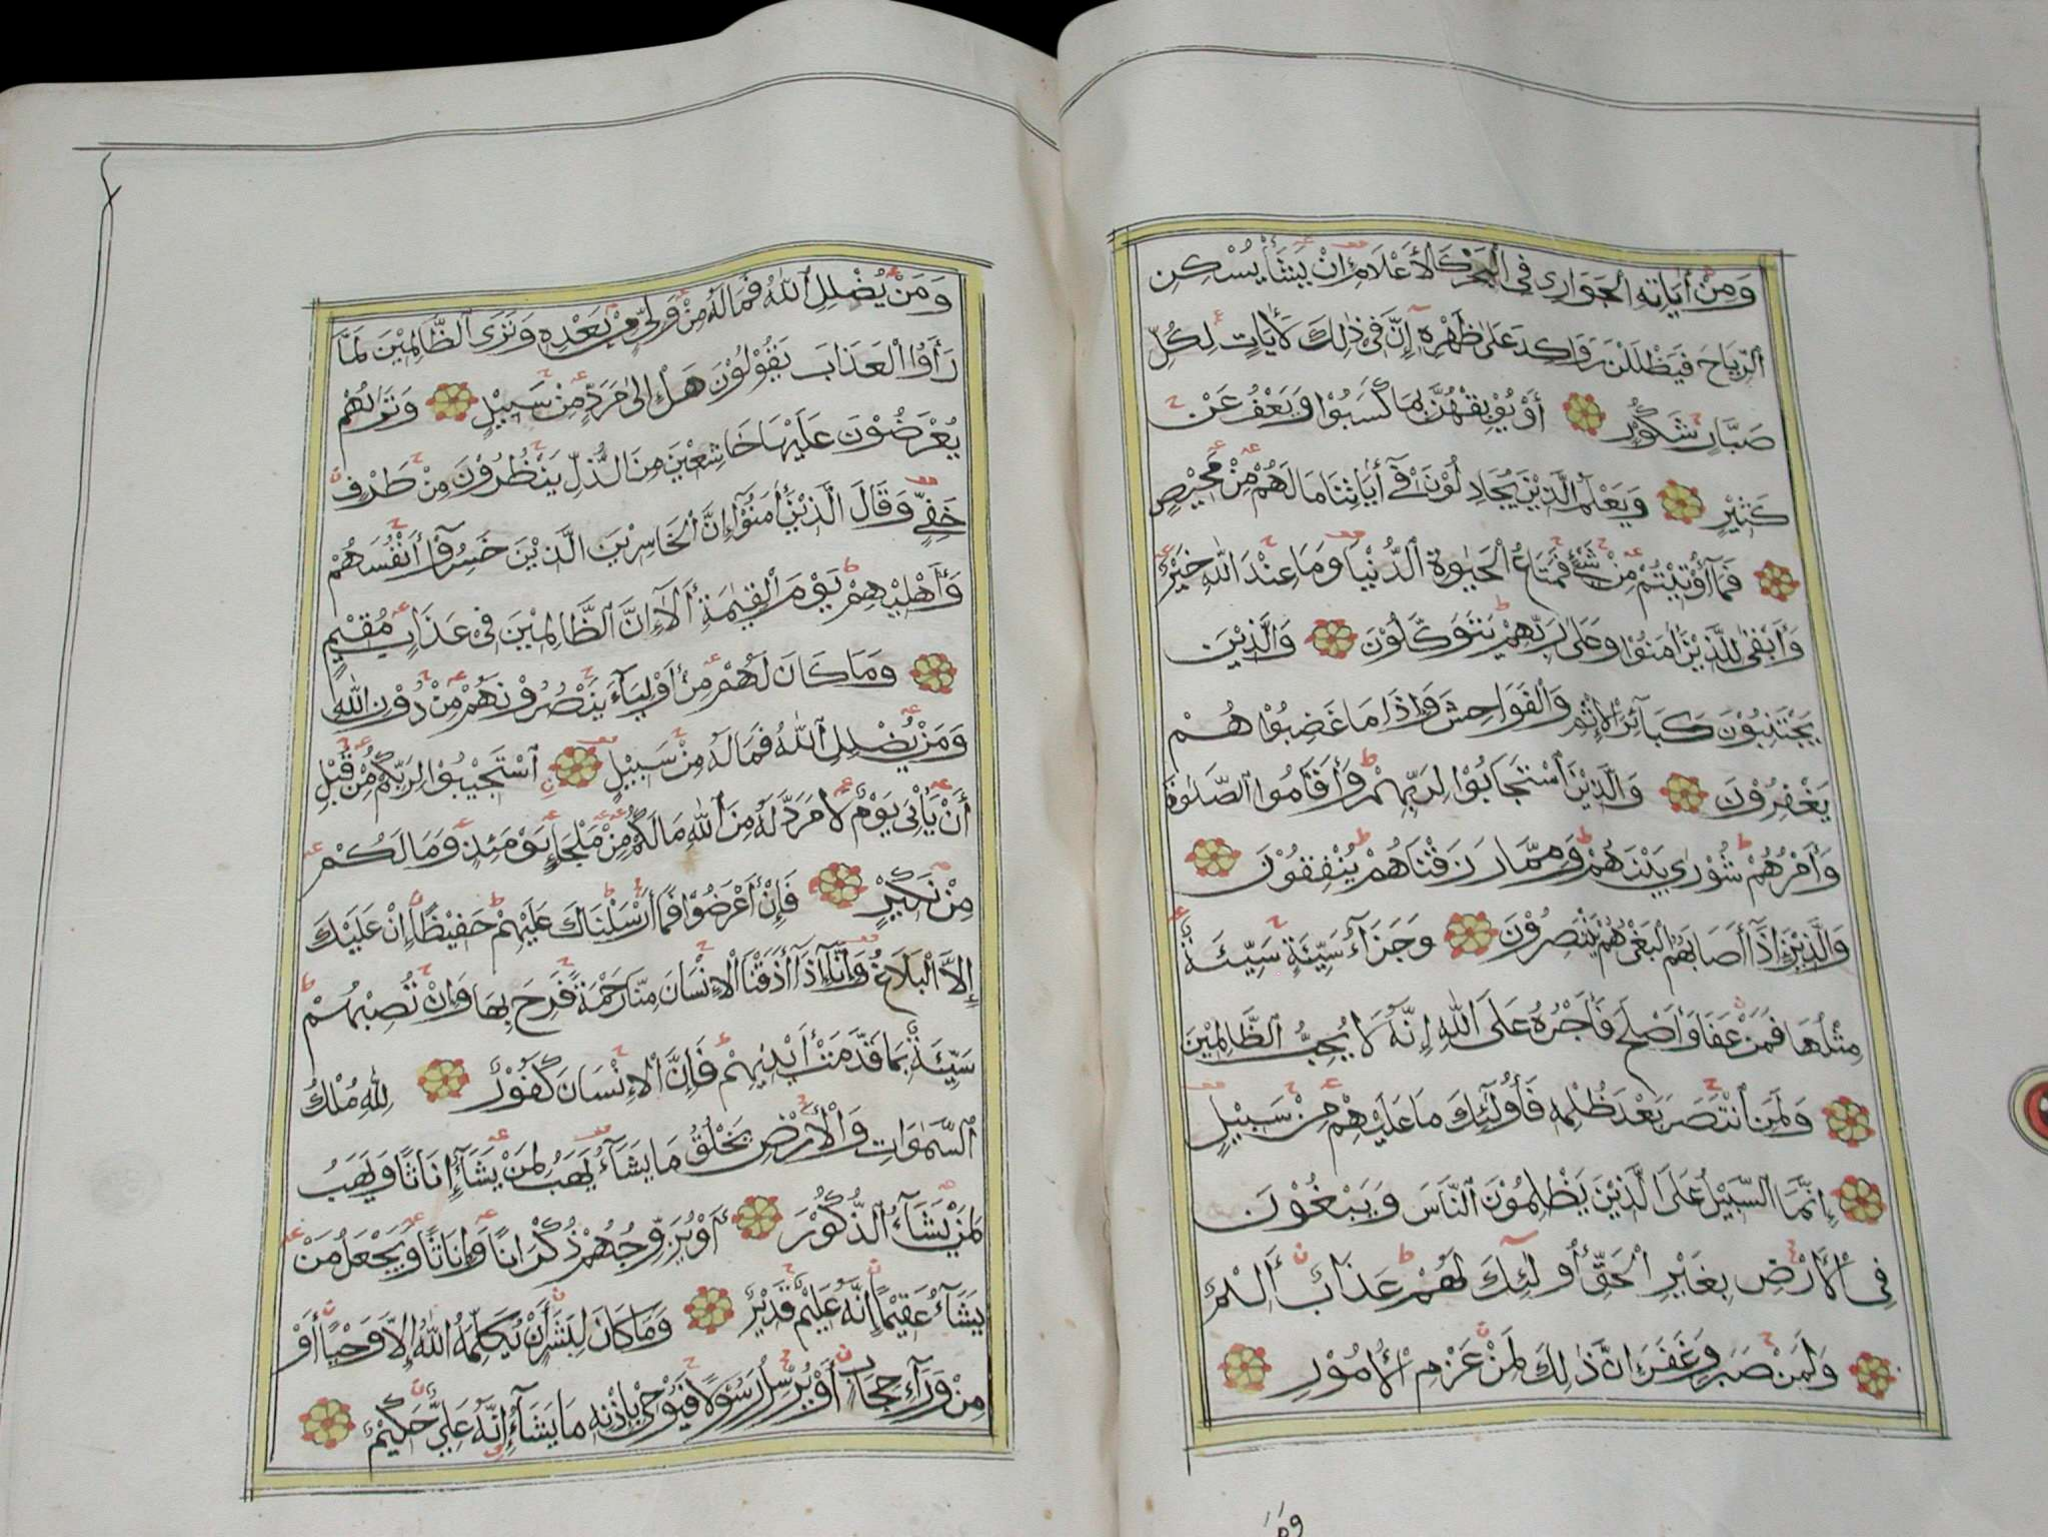 وَمِنْ أٰيَاتِهِ الْجَوَارِى فِى الْبَحْرِ كَالْأَعْلَامِ اِنْ يَشَأْ يُسْكِنِ
الرِّيَاحَ فَيَظْلَلْنَ رَوَاكِدَ عَلٰى ظَهْرِهِ إِنَّ فِى ذٰلِكَ لَأٰيَاتٍ لِكُلِّ
صَبَّارٍ شَكُوْرٍ أَوْ يُوْبِقْهُنَّ بِمَا كَسَبُوْا وَيَعْفُ عَنْ
كَثِيْرٍ وَيَعْلَمَ الَّذِيْنَ يُجَادِلُوْنَ فِىٓ أٰيَاتِنَا مَا لَهُمْ مِنْ مَحِيْصٍ
فَمَآ أُوْتِيْتُمْ مِنْ شَيْءٍ فَمَتَاعُ الْحَيٰوةِ الدُّنْيَا وَمَا عِنْدَ اللّٰهِ خَيْرٌ
وَأَبْقٰى لِلَّذِيْنَ أٰمَنُوْا وَعَلٰى رَبِّهِمْ يَتَوَكَّلُوْنَ وَالَّذِيْنَ
يَجْتَنِبُوْنَ كَبَآئِرَ الْاِثْمِ وَالْفَوَاحِشَ وَاِذَا مَا غَضِبُوْا هُمْ
يَغْفِرُوْنَ وَالَّذِيْنَ اسْتَجَابُوْا لِرَبِّهِمْ وَأَقَامُوا الصَّلٰوةَ
وَأَمْرُهُمْ شُوْرٰى بَيْنَهُمْ وَمِمَّا رَزَقْنَاهُمْ يُنْفِقُوْنَ
وَالَّذِيْنَ إِذَآ أَصَابَهُمُ الْبَغْيُ هُمْ يَنْتَصِرُوْنَ وَجَزَآءُ سَيِّئَةٍ سَيِّئَةٌ
مِثْلُهَا فَمَنْ عَفَا وَأَصْلَحَ فَأَجْرُهُ عَلَى اللّٰهِ إِنَّهُ لَا يُحِبُّ الظَّالِمِيْنَ
وَلَمَنِ انْتَصَرَ بَعْدَ ظُلْمِهِ فَأُولٰٓئِكَ مَا عَلَيْهِمْ مِنْ سَبِيْلٍ
اِنَّمَا السَّبِيْلُ عَلَى الَّذِيْنَ يَظْلِمُوْنَ النَّاسَ وَيَبْغُوْنَ
فِى الْأَرْضِ بِغَيْرِ الْحَقِّ أُولٰٓئِكَ لَهُمْ عَذَابٌ أَلِيْمٌ
وَلَمَنْ صَبَرَ وَغَفَرَ اِنَّ ذٰلِكَ لَمِنْ عَزْمِ الْأُمُوْرِ
وَمَنْ
وَمَنْ يُضْلِلِ اللّٰهُ فَمَا لَهُ مِنْ وَلِيٍّ مِنْ بَعْدِهِ وَتَرَى الظَّالِمِيْنَ لَمَّا
رَأَوُا الْعَذَابَ يَقُوْلُوْنَ هَلْ إِلٰى مَرَدٍّ مِنْ سَبِيْلٍ وَتَرٰىهُمْ
يُعْرَضُوْنَ عَلَيْهَا خَاشِعِيْنَ مِنَ الذُّلِّ يَنْظُرُوْنَ مِنْ طَرْفٍ
خَفِيٍّ وَقَالَ الَّذِيْنَ أٰمَنُوْٓا إِنَّ الْخَاسِرِيْنَ الَّذِيْنَ خَسِرُوْٓا أَنْفُسَهُمْ
وَأَهْلِيْهِمْ يَوْمَ الْقِيٰمَةِ أَلَآ إِنَّ الظَّالِمِيْنَ فِىْ عَذَابٍ مُقِيْمٍ
وَمَا كَانَ لَهُمْ مِنْ أَوْلِيَآءَ يَنْصُرُوْنَهُمْ مِنْ دُوْنِ اللّٰهِ
وَمَنْ يُضْلِلِ اللّٰهُ فَمَا لَهُ مِنْ سَبِيْلٍ اسْتَجِيْبُوْا لِرَبِّكُمْ مِنْ قَبْلِ
أَنْ يَأْتِىَ يَوْمٌ لَا مَرَدَّ لَهُ مِنَ اللّٰهِ مَا لَكُمْ مِنْ مَلْجَإٍ يَوْمَئِذٍ وَمَا لَكُمْ
مِنْ نَكِيْرٍ فَإِنْ أَعْرَضُوْا فَمَآ أَرْسَلْنَاكَ عَلَيْهِمْ حَفِيْظًا إِنْ عَلَيْكَ
إِلَّا الْبَلَاغُ وَإِنَّآ إِذَآ أَذَقْنَا الْاِنْسَانَ مِنَّا رَحْمَةً فَرِحَ بِهَا وَاِنْ تُصِبْهُمْ
سَيِّئَةٌ بِمَا قَدَّمَتْ أَيْدِيْهِمْ فَإِنَّ الْاِنْسَانَ كَفُوْرٌ لِلّٰهِ مُلْكُ
السَّمٰوَاتِ وَالْأَرْضِ يَخْلُقُ مَا يَشَآءُ يَهَبُ لِمَنْ يَشَآءُ إِنَاثًا وَيَهَبُ
لِمَنْ يَشَآءُ الذُّكُوْرَ أَوْ يُزَوِّجُهُمْ ذُكْرَانًا وَإِنَاثًا وَيَجْعَلُ مَنْ
يَشَآءُ عَقِيْمًا إِنَّهُ عَلِيْمٌ قَدِيْرٌ وَمَا كَانَ لِبَشَرٍ أَنْ يُكَلِّمَهُ اللّٰهُ إِلَّا وَحْيًا أَوْ
مِنْ وَرَآءِ حِجَابٍ أَوْ يُرْسِلَ رَسُوْلًا فَيُوْحِىَ بِإِذْنِهِ مَا يَشَآءُ إِنَّهُ عَلِيٌّ حَكِيْمٌ